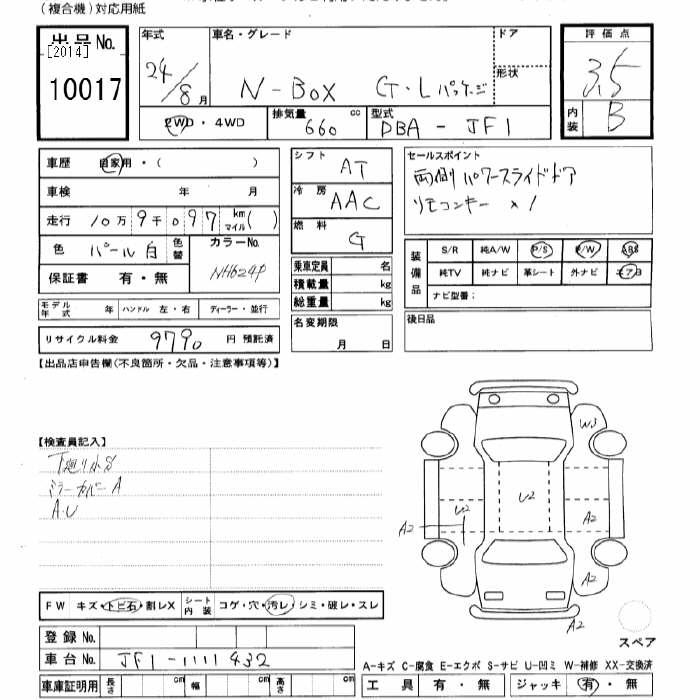 (複合機)対応用紙
出品 No.
[2014]
10017
年式
24/8 月
車名・グレード
N-BOX G・Lパッケージ
ドア
形状
2WD・4WD
排気量 660 cc
型式 DBA-JF1
評価点
3.5
内装 B
車歴 自家用・( )
車検 年 月
走行 10万9千097 km マイル( )
色 パール白 色替
カラーNo. NH624P
保証書 有・無
モデル年式 年 ハンドル 左・右 ディーラー・並行
リサイクル料金 9790 円 預託済
シフト AT
冷房 AAC
燃料 G
乗車定員 名
積載量 kg
総重量 kg
名変期限
月 日
セールスポイント
両側パワースライドドア
リモコンキー ×1
装備品
S/R 純A/W P/S P/W ABS
純TV 純ナビ 革シート 外ナビ エアB
ナビ型番:
後日品
【出品店申告欄(不良箇所・欠品・注意事項等)】
【検査員記入】
下廻り小S
ミラーカバーA
A.U
W3
U2
U2
A2
A2
A2
A2
スペア
FW キズ・トビ石・割レX
シート内装 コゲ・穴・汚レ・シミ・破レ・スレ
登録 No.
車台 No. JF1-1111432
車庫証明用 長さ cm 幅 cm 高さ cm
A-キズ C-腐食 E-エクボ S-サビ U-凹ミ W-補修 XX-交換済
工具 有・無 ジャッキ 有・無